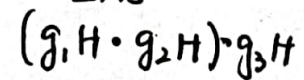 (g₁H · g₂H) · g₃H